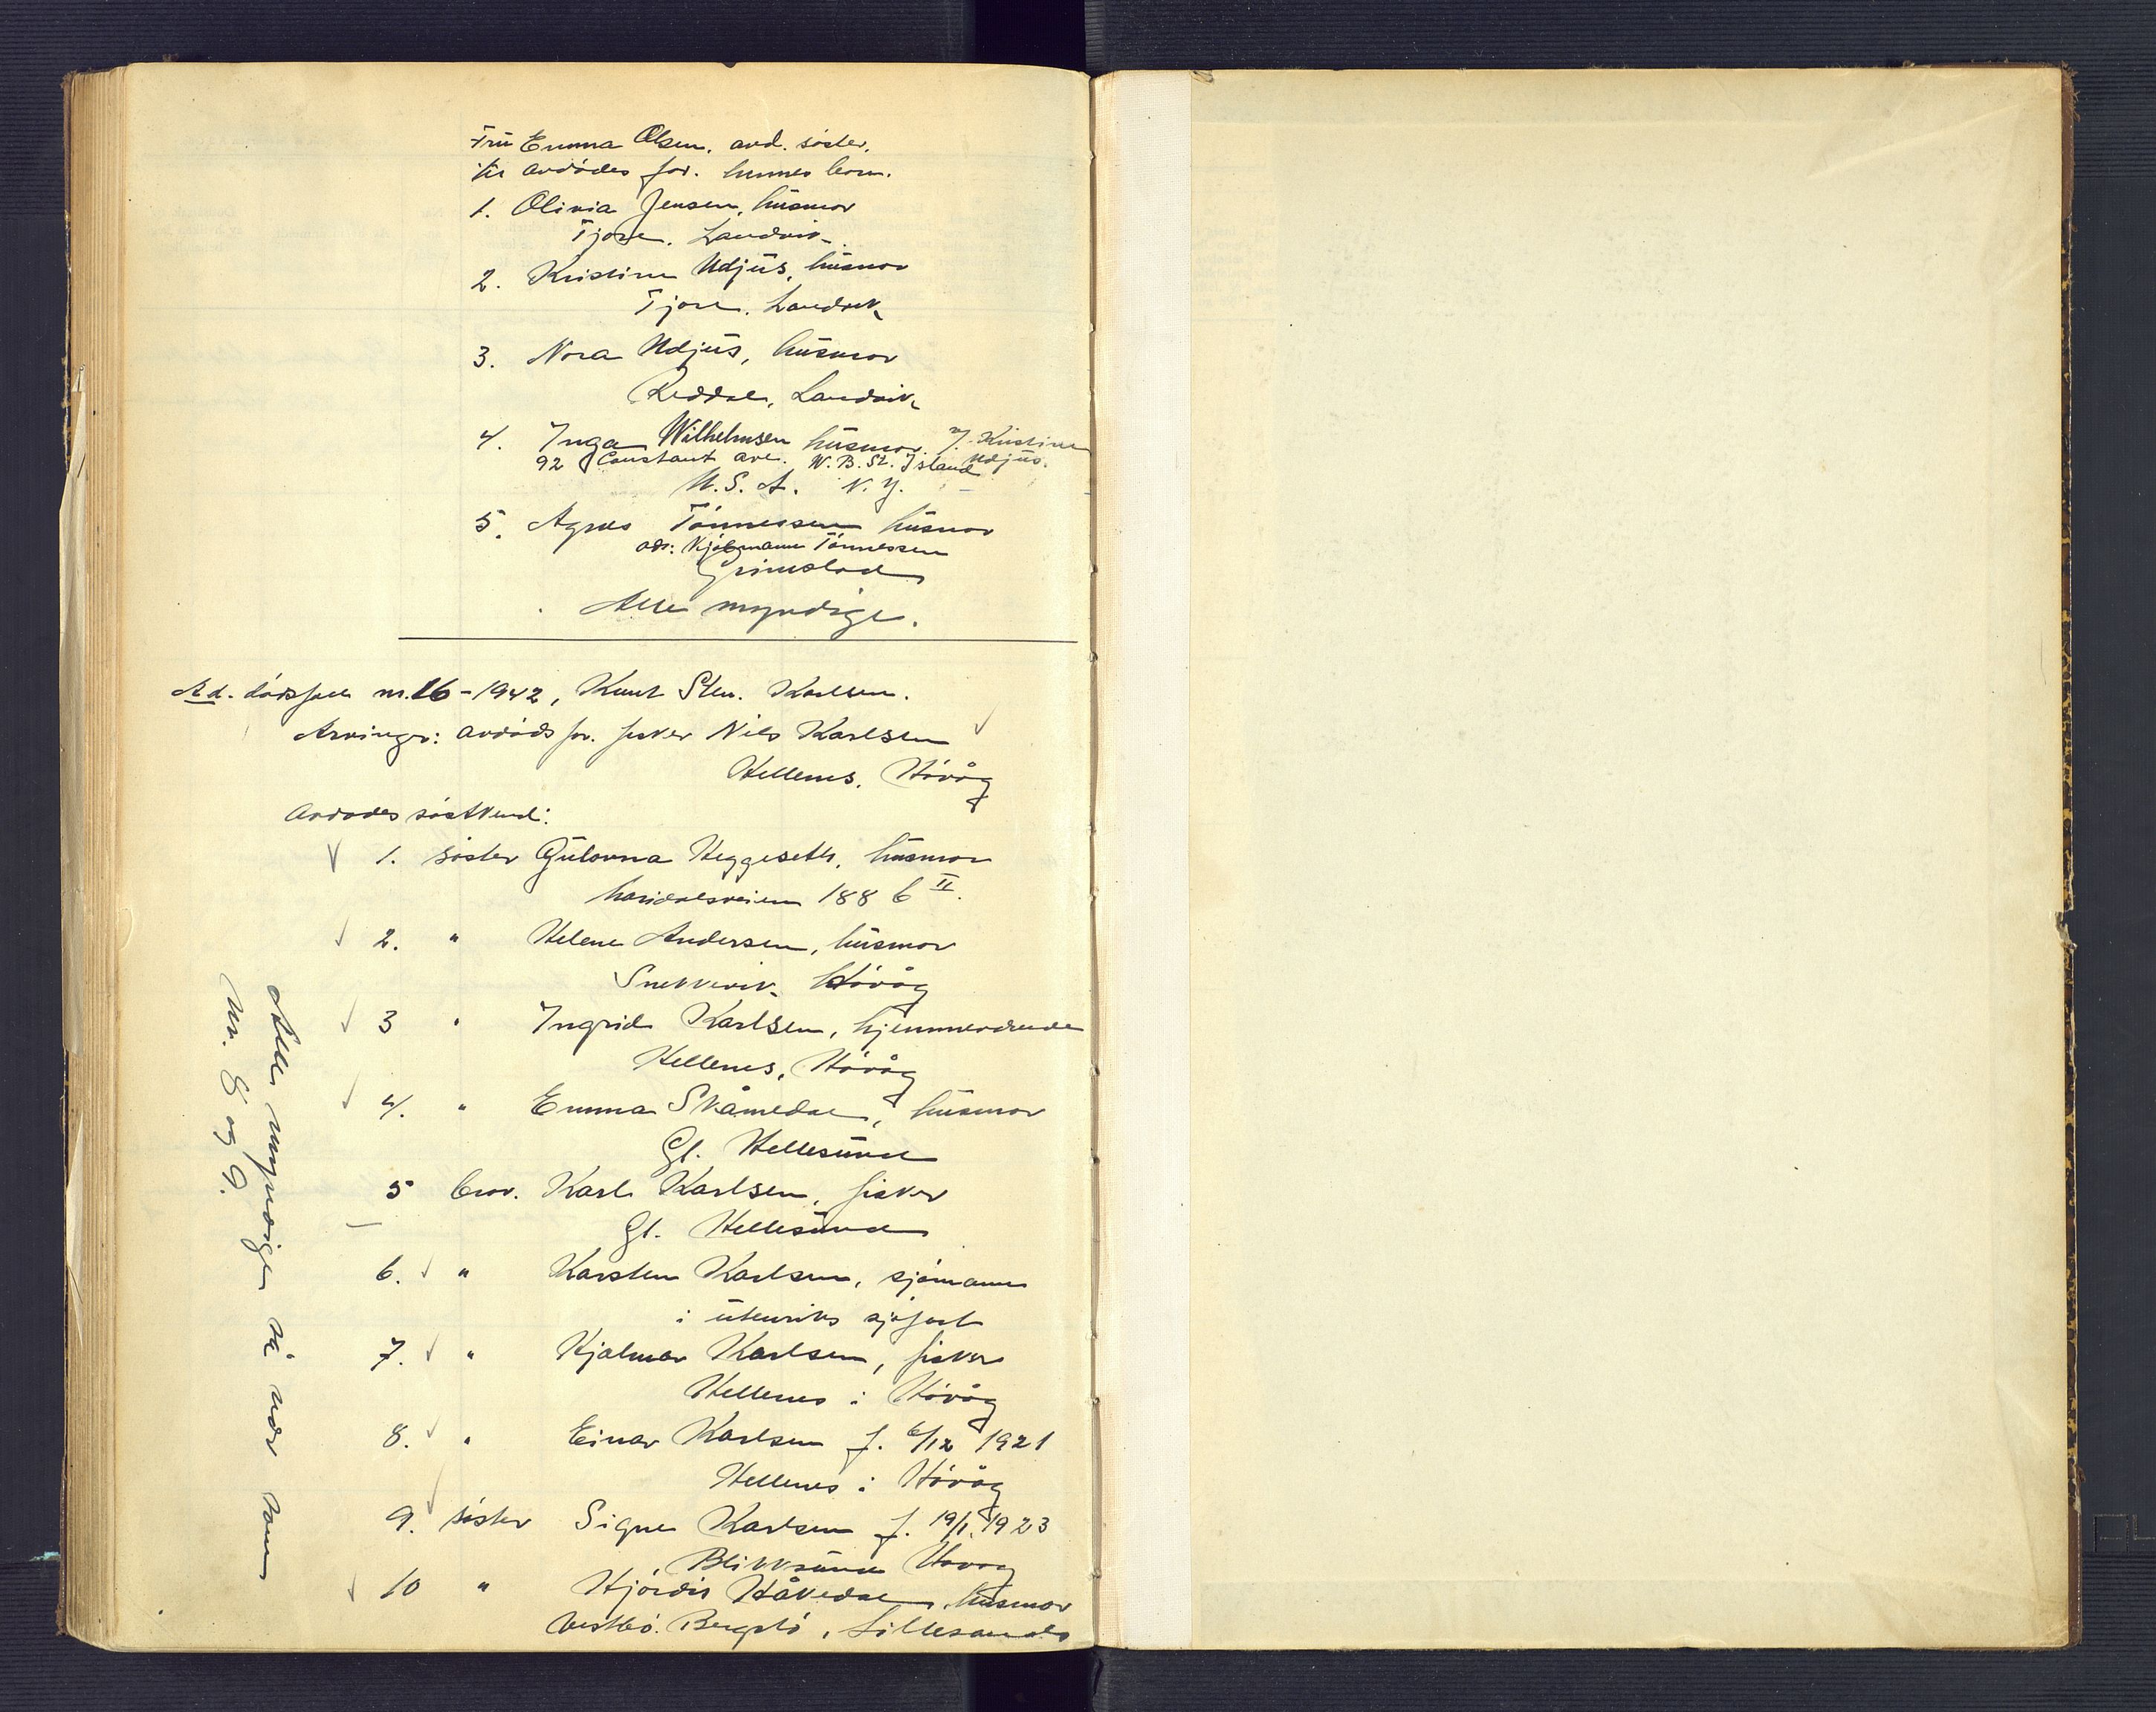 Frü Emma Olsen. avd. söster.
til avdødes far. hennes barn.
1. Olivia Jensen, hüsmor
Tjore. Landvik.
2. Kristine Udjüs, hüsmor
Tjore. Landvik
3. Nora Udjüs, hüsmor
Reddal, Landvik
4. Inga Wilhelmsen hüsmor v/ Kristine
92 Constant ave. W. B. St. Island Udjüs.
U. S. A. N. Y.
5. Agnes Tönnessen hüsmor
adr: Kjöbmann Tönnessen
Grimstad
Alle myndige.
Ad. dödsfall nr. 16 - 1942, Knut Karlsen.
Arvinger: avdöds far. fisker Nils Karlsen
Hellenes. Hövåg
Avdødes söskend:
1. söster Gülovna Heggeseth, hüsmor
Maridalsveien 188 b II.
2. " Helene Andersen, hüsmor
Snekkevik. Hövåg
3 " Ingrid Karlsen, hjemmeværende
Hellenes, Hövåg
4. " Emma Skåmedal, hüsmor
Gl. Hellesünd
5 bror. Karl Karlsen, fisker
Gl. Hellesünd
6. " Karsten Karlsen, sjömann
i ütenriks sjöfart
7. " Hjalmar Karlsen, fisker
Hellenes i Hövåg
8. " Einar Karlsen f. 6/12 1921
Hellenes i Hövåg
9. söster Signe Karlsen f. 19/1. 1923
Blikksünd Hövåg
10 " Hjördis Håvedal, hüsmor
Vestbö. Bergstö, Lillesand
Alle myndige på när som
Nr. 8 og 9.